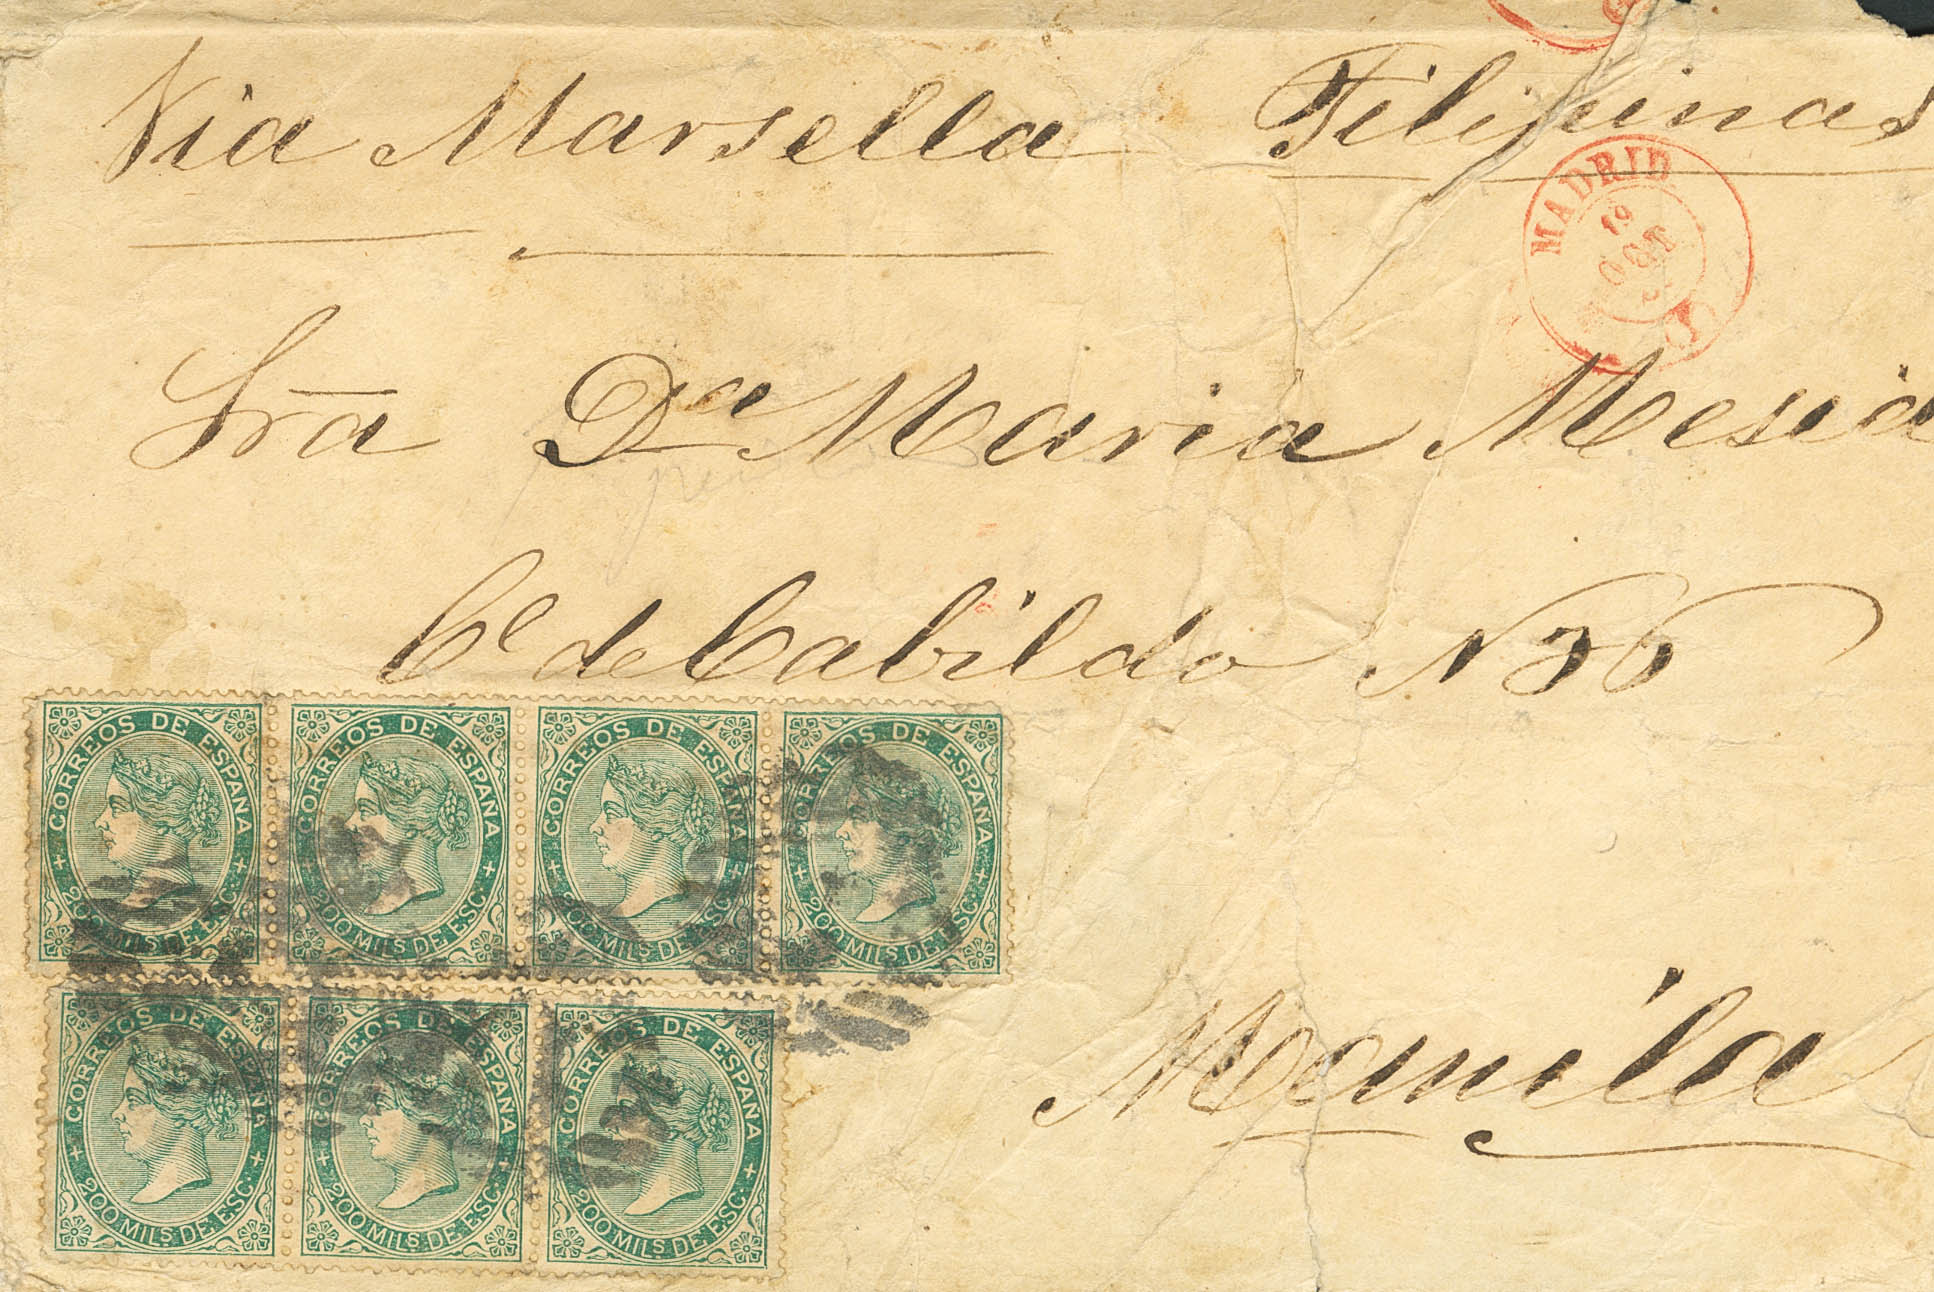 Via Marsella Filipinas
MADRID
19
OCT
(1)
Sra Da Maria Mesia
Ce de Cabildo N 36
CORREOS DE ESPAÑA
200 MILS. DE ESC.
CORREOS DE ESPAÑA
200 MILS. DE ESC.
CORREOS DE ESPAÑA
200 MILS. DE ESC.
CORREOS DE ESPAÑA
200 MILS. DE ESC.
Manila
CORREOS DE ESPAÑA
200 MILS. DE ESC.
CORREOS DE ESPAÑA
200 MILS. DE ESC.
CORREOS DE ESPAÑA
200 MILS. DE ESC.